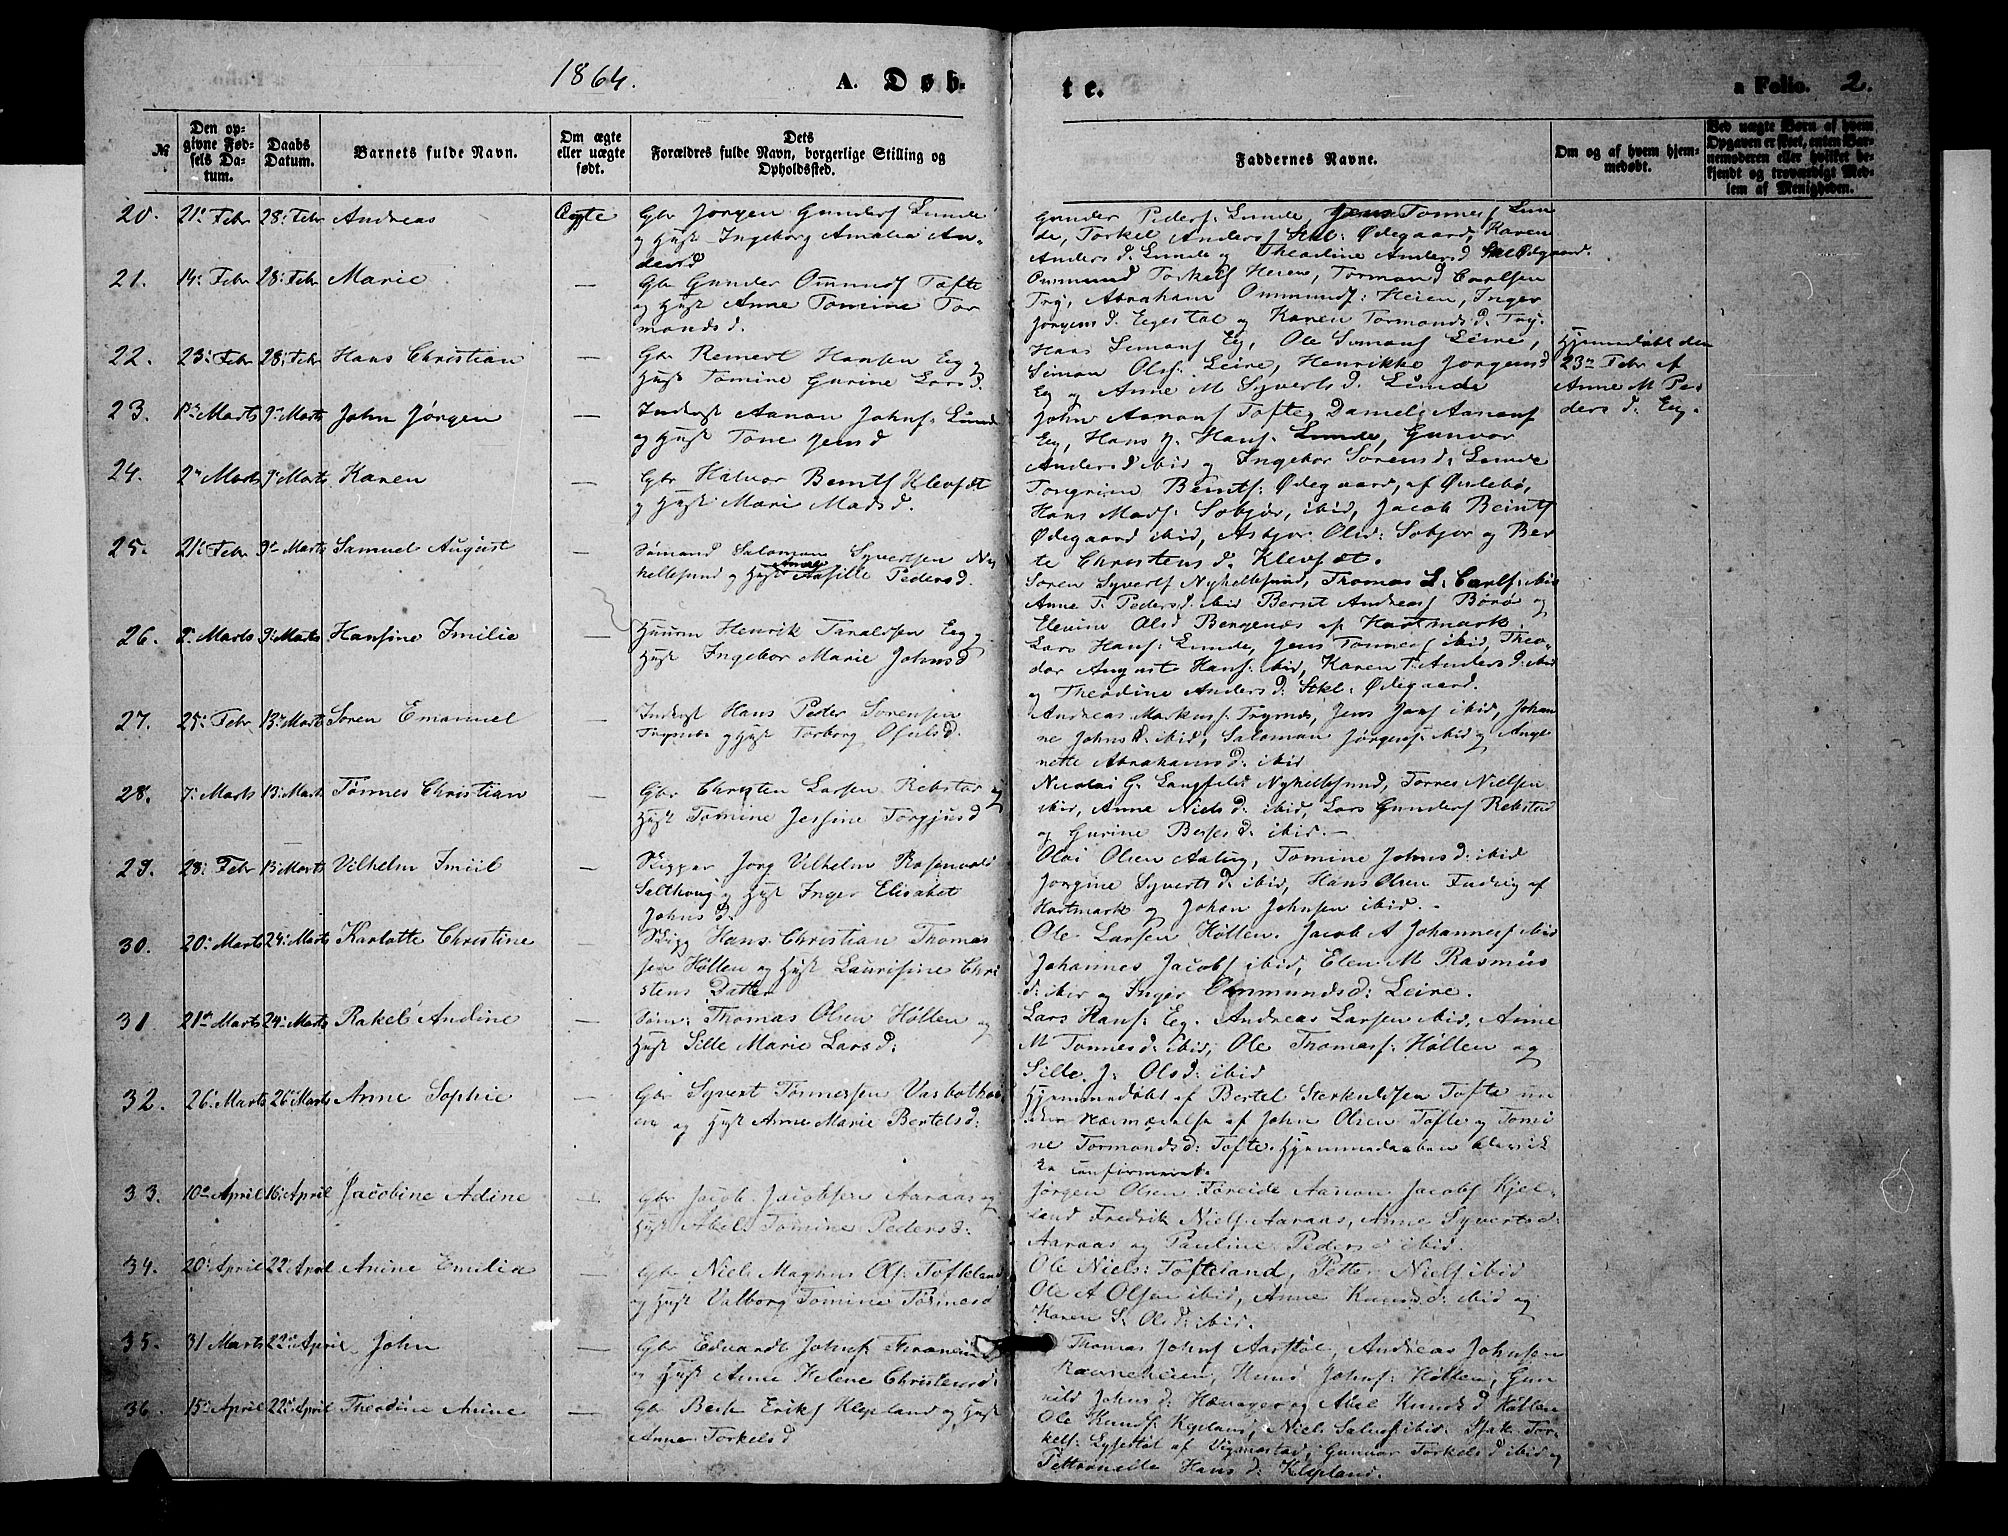 1864. A. Døb- te. a Folio. 2.
№
Den opgivne Fødsels Datum.
Daabs Datum.
Barnets fulde Navn.
Om ægte eller uægte født.
Dets Forældres fulde Navn, borgerlige Stilling og Opholdssted.
Faddernes Navne.
Om og af hvem hjemmedøbt.
Ved uægte Børn af hvem Opgaven er skeet, enten Barnemoderen eller hvilket bekjendt og troværdigt Medlem af Menigheden.
20. 21de Febr 28: Febr Andreas Ægte Gbr Jørgen Gunders Lunde
og Hust Ingeborg Amalia An-
dersd
Gunder Peders: Lunde, Jens Tønnes Lun
de, Torkel Anders Stkl: Ødegaard, Karen
Anders d. Lunde og Theodine Anders d Stkl Ødegaard.
21. 14: Febr 28: Febr Marie — Gbr Gunder Omunds Tofte
og Hust Anne Tomine Tor
monds d.
Ommund Torkels Heien, Tormond Carlsen
Try, Abraham Ommunds: Heien, Inger
Jørgens d. Egestøl og Karen Tormonds d. Try.
22. 23: Febr 28: Febr Hans Christian — Gbr Reinert Hansen Eg og
Hust Tomine Gurine Lars d.
Hans Simons Eg, Ole Simons Leire,
Simon Ols: Leire, Henrikke Jørgens d
Eg og Anne M Syverts d. Lunde
Hjemmedøbt den
23de Febr af
Anne M Pe
ders d. Eig.
23. 1ste Marts 9de Marts John Jørgen — Inderst Aanon Johns: Lunde
og Hust Tone Jens d
John Aanons Tofte, Daniel Aanons
Eg, Hans J. Hans: Lunde, Gunvor
Anders d ibid og Ingebor Sørens d: Lunde
24. 2de Marts 9de Marts Karen — Gbr Halvor Bernts Klevset
og Hust Mari Mads d.
Torgrim Bernts: Ødegaard, af Øslebø,
Hans Mads: Sobjør, ibid, Jacob Bernts
Ødegaard ibid, Asbjør Ols d: Sobjør og Ber
te Christens d. Klevset.
25. 21: Febr 9de Marts Samuel August — Sømand Salomon Syvertsen Ny
hellesund og Hust Peders d.
Søren Syverts Nyhellesund, Thomas L: Carls: ibid
Anne T. Peders d ibid Bernt Andreas Borø og
Elevine Ols d Bergenes af Hartmark.
26. 2: Marts 9: Marts Hansine Imilie — Huusm Henrik Taraldsen Eg og
Hust Ingebor Marie Johns d
Lars Hans: Lunde, Jens Tønnes ibid, Theo-
dor August Hans: ibid, Karen T. Anders d: ibid
og Theodine Anders d: Stkl: Ødegaard.
27. 25: Febr 13: Marts Søren Emanuel — Inderst Hans Peder Sørensen
Trysnes og Hust Torborg Osuls d.
Andreas Markuss: Trysnes, Jens Jens ibid, Johan
ne Johns d. ibid, Salomon Jørgens: ibid og Ange
nette Abrahams d: ibid
28. 7: Marts 13: Marts Tønnes Christian — Gbr Christen Larsen Rebstad og
Hust Tomine Jessine Torgjus d
Nicolai G. Langfeldt Nyhellesund, Torres Nielsen
ibid, Anne Niels d: ibid, Lars Gunders Rebstad
og Gurine Berges d: ibid.
29. 28: Febr 13 Marts Vilhelm Imiil — Skipper Jørg Vilhelm Rosenvold
Salthoug og Hust Inger Elisabet
Johns d.
Olai Olsen Aalug, Tomine Johns d: ibid
Jorgine Syverts d: ibid, Hans Olsen Fuskeig af
Hartmark og Johan Johnsen ibid.
30. 20: Marts 24: Marts Karlotte Christine — Skipp Hans Christian Thomas
sen Høllen og Hust Laurisine Chri
stens Datter
Ole Larsen Høllen. Jacob A Johannes ibid
Johannes Jacobs ibid, Elen M Rasmus
d: ibid og Inger Ommunds d: Leire.
31. 21de Marts 24: Marts Rakel Andine — Søm: Thomas Olsen Høllen og
Hust Sille Marie Lars d:
Lars Hans: Eg. Andreas Larsen ibid, Anne
M Tønnes d: ibid, Ole Thomass: Høllen og
Sille J. Ols d: ibid
32. 26: Marts 26: Marts Anne Sophie — Gbr Syvert Tønnessen Vasbothei
en og Hust Anne Marie Bertels d:
Hjemmedøbt af Bertel Sterkulfsen Tofte un
der Nærværelse af John Olsen Tofte og Tomi
ne Tormonds d: Tofte. Hjemmedaaben blev ik
ke confirmeret.
33. 10de April 16: April Jacobine Adine — Gbr Jacob Jacobsen Aaraas og
Hust Abel Tomine Peders d:
Jørgen Olsen Foreide Aanon Jacobs Kjel-
land Fredrik Niels Aaraas, Anne Syverts d:
Aaraas og Pauline Peders d ibid.
34. 20: April 22: April Anine Emilia — Gbr Niels Magnus Ols: Tofteland
og Hust Valborg Tomine Tønnes d
Ole Niels: Tofteland, Petter Niels ibid
Ole A Olsen ibid, Anne Knuds d: ibid og
Karen S. Ols d: ibid.
35. 31 Marts 22: April John — Gbr Edvardt Johns
og Hust Anne Helene Christens d:
Thomas Johns Aarstøl, Andreas Johnsen
Ravneheien, Knud Johns: Høllen, Gun
nild Johns d: og Abel Knuds d Høllen
36. 15: April 22: April Theodine Anine — Gbr Bent Eriks Klepland og Hust
Anne Torkels d
Ole Knuds Klepland, Niels Salves ibid. Isak Tor-
kels: Lysestøl af Vigmostad, Gunvor Torkels d ibid og
Petternelle Hans d: Klepland.